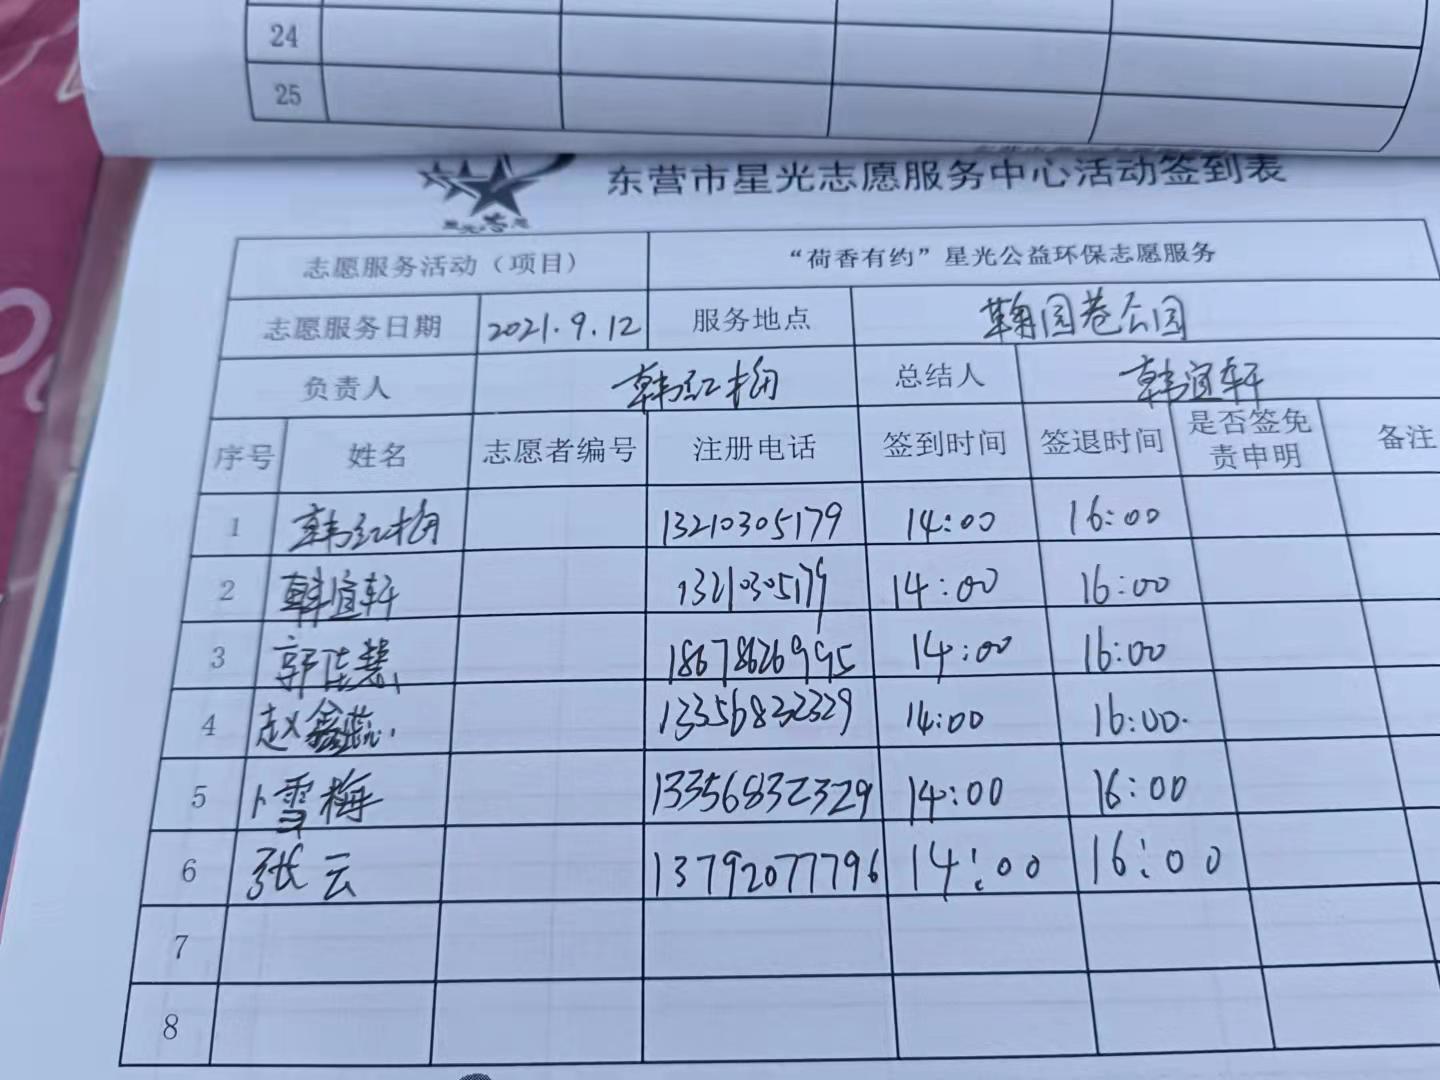 24
25
东营市星光志愿服务中心活动签到表
志愿服务活动（项目） “荷香有约”星光公益环保志愿服务
志愿服务日期 2021.9.12 服务地点 鞠园巷公园
负责人 韩红梅 总结人 韩宜轩
序号 姓名 志愿者编号 注册电话 签到时间 签退时间 是否签免责申明 备注
1 韩红梅 13210305179 14:00 16:00
2 韩宜轩 13210305179 14:00 16:00
3 郭佳慧 18678626995 14:00 16:00
4 赵鑫蕊 13356832329 14:00 16:00
5 卜雪梅 13356832329 14:00 16:00
6 张云 13792077796 14:00 16:00
7
8